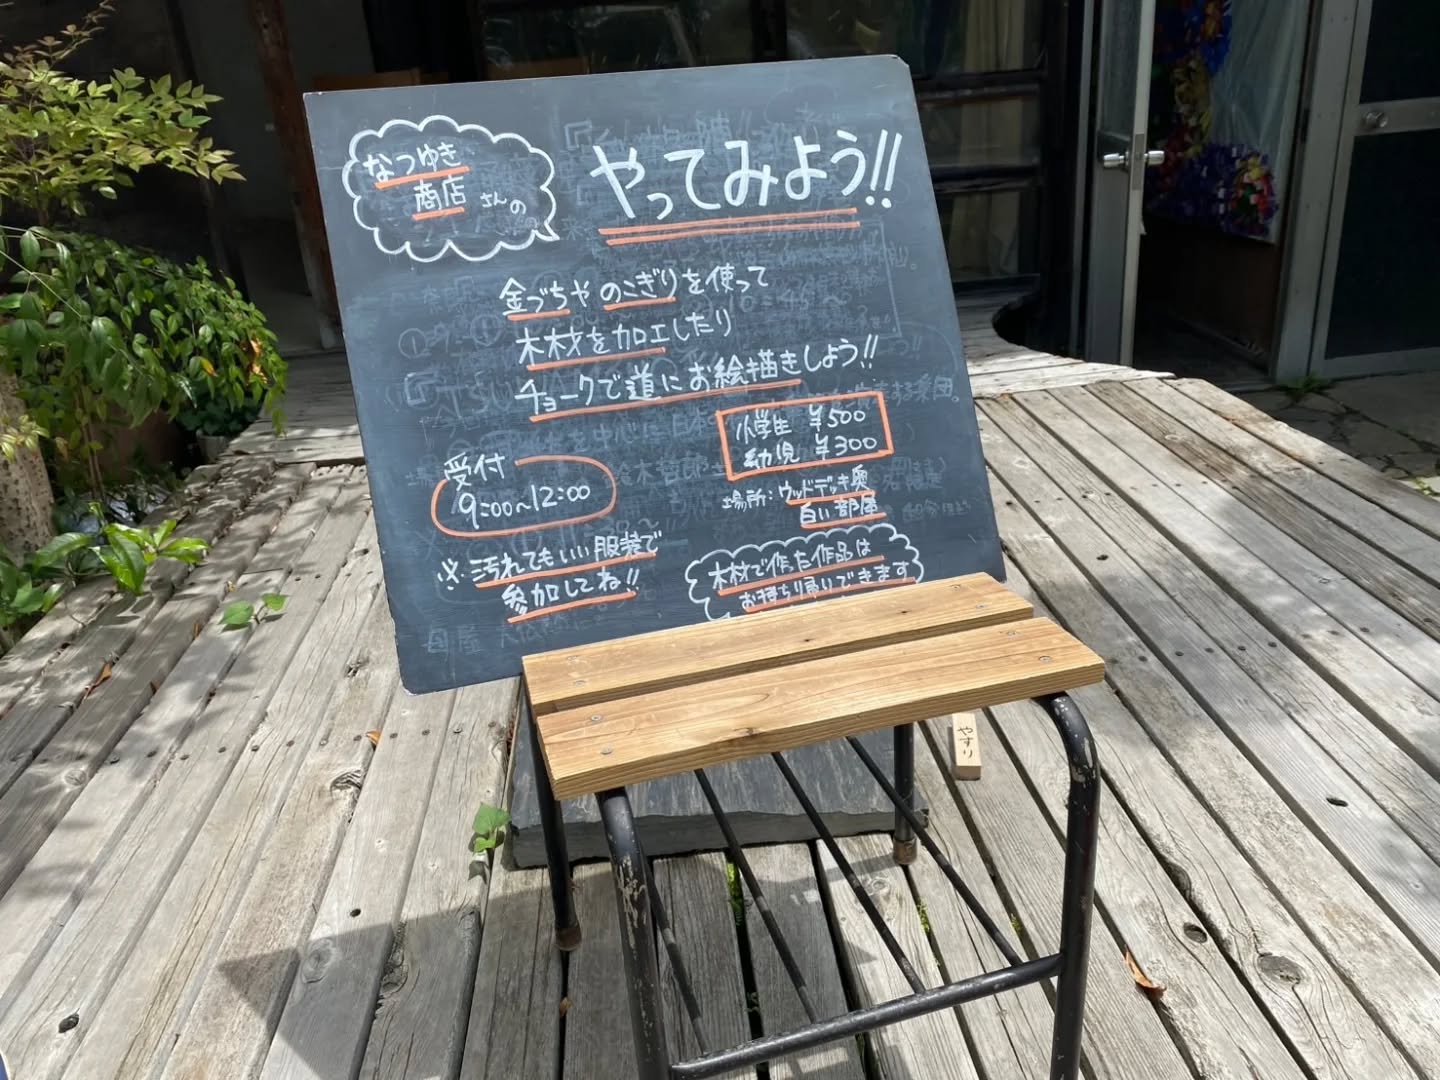 なつゆき
商店さんの
やってみよう!!
金づちやのこぎりを使って
木材を加工したり
チョークで道にお絵描きしよう!!
小学生 ¥500
幼児 ¥300
受付
9:00~12:00
場所:ウッドデッキ奥
白い部屋
※汚れてもいい服装で
参加してね!!
木材で作った作品は
お持ち帰りできます
やすり